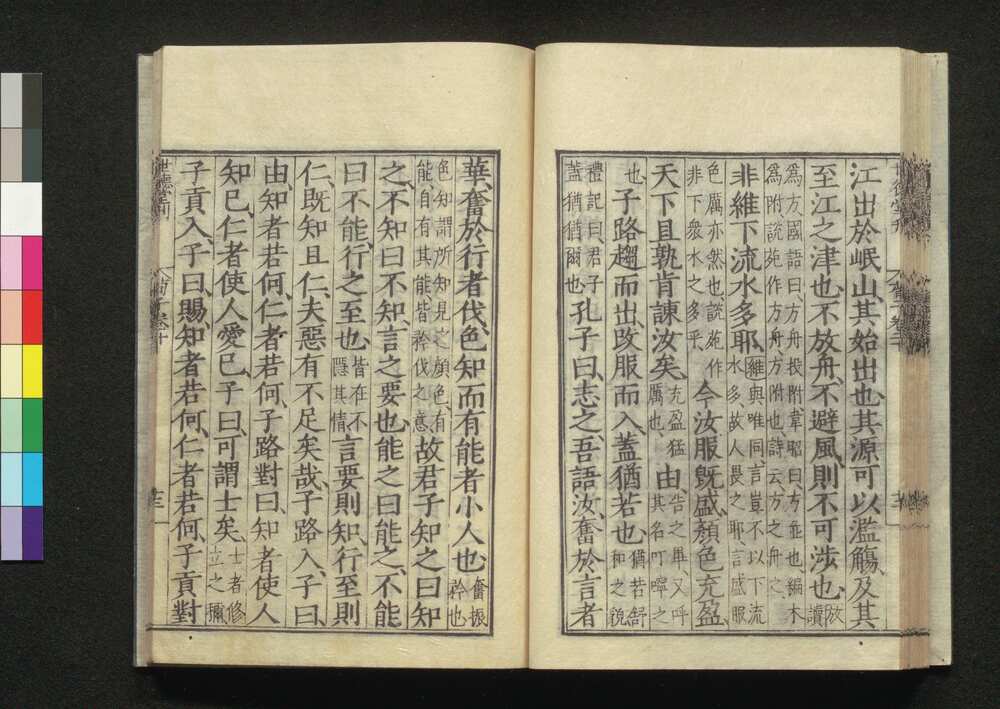 江出於岷山、其始出也、其源可以濫觴、及其
至江之津也、不放舟、不避風、則不可涉也、放讀
爲方國語曰、方舟投附韋昭曰、方並也、編木
爲附說苑作方舟方附也詩云方之舟之
非維下流水多耶、維與唯同言豈不以下流
水多故人畏之耶、言盛服
色厲亦然也、說苑作
非下衆水之多乎
今汝服旣盛、顏色充盈、
天下且孰肯諫汝矣、充盈猛
厲也
由、告之畢又呼
其名叮嚀之
也
子路趨而出、改服而入、蓋猶若也、猶若舒
和之貌
禮記曰君子
蓋猶猶爾也
孔子曰、志之、吾語汝、奮於言者
華、奮於行者伐、色知而有能者、小人也、奮振
矜也
色知謂所知見之顏色有
能自有其能皆矜伐之意
故君子知之曰知
之、不知曰不知、言之要也、能之曰能之、不能
曰不能、行之至也、皆在不
隱其情
言要則知、行至則
仁、既知且仁、夫惡有不足矣哉、子路入、子曰、
由、知者若何、仁者若何、子路對曰、知者使人
知已、仁者使人愛已、子曰、可謂士矣、士者修
立之稱
子貢入、子曰、賜、知者若何、仁者若何、子貢對
世德堂刊